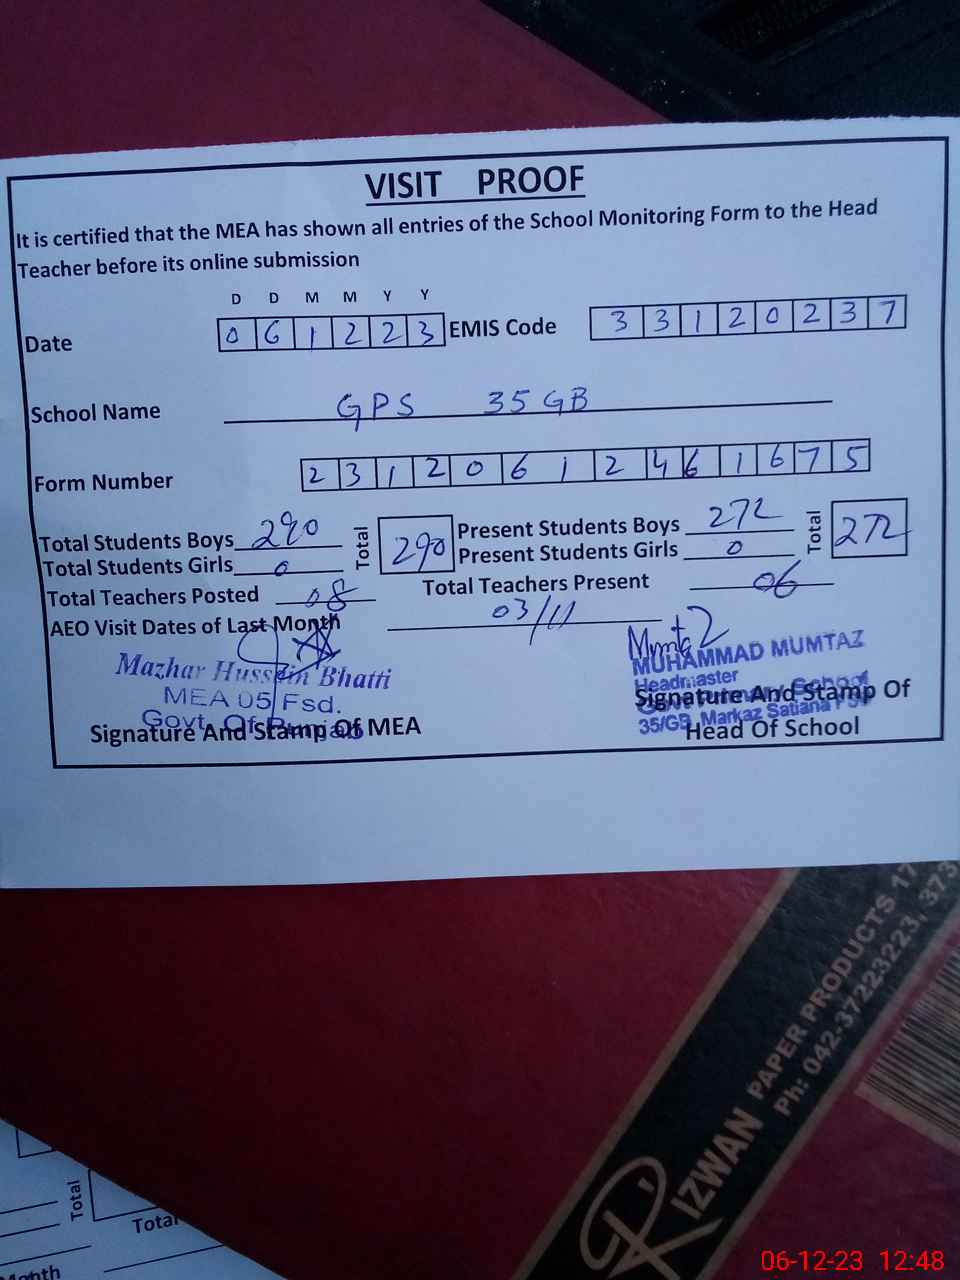 VISIT PROOF
It is certified that the MEA has shown all entries of the School Monitoring Form to the Head
Teacher before its online submission
D D M M Y Y
Date 0 6 1 2 2 3 EMIS Code 3 3 1 2 0 2 3 7
School Name GPS 35 GB
Form Number 2 3 1 2 0 6 1 2 4 6 1 6 7 5
Total Students Boys 290 Total 290 Present Students Boys 272 Total 272
Total Students Girls 0 Present Students Girls 0
Total Teachers Posted 08 Total Teachers Present 06
AEO Visit Dates of Last Month 03/11
Mumtaz
Mazhar Hussain Bhatti MUHAMMAD MUMTAZ
MEA 05 Fsd. Headmaster
Govt. Of Punjab School
Signature And Stamp Of MEA Signature And Stamp Of
35/GB, Markaz Satiana
Head Of School
RIZWAN PAPER PRODUCTS
Ph: 042-37223223, 373
Total
Total
06-12-23 12:48